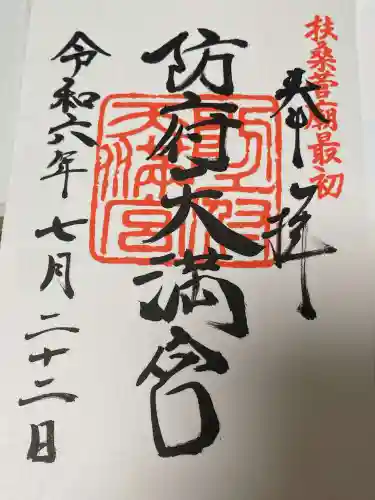 扶桑菅廟最初
奉拝
防府天満宮
令和六年七月二十二日